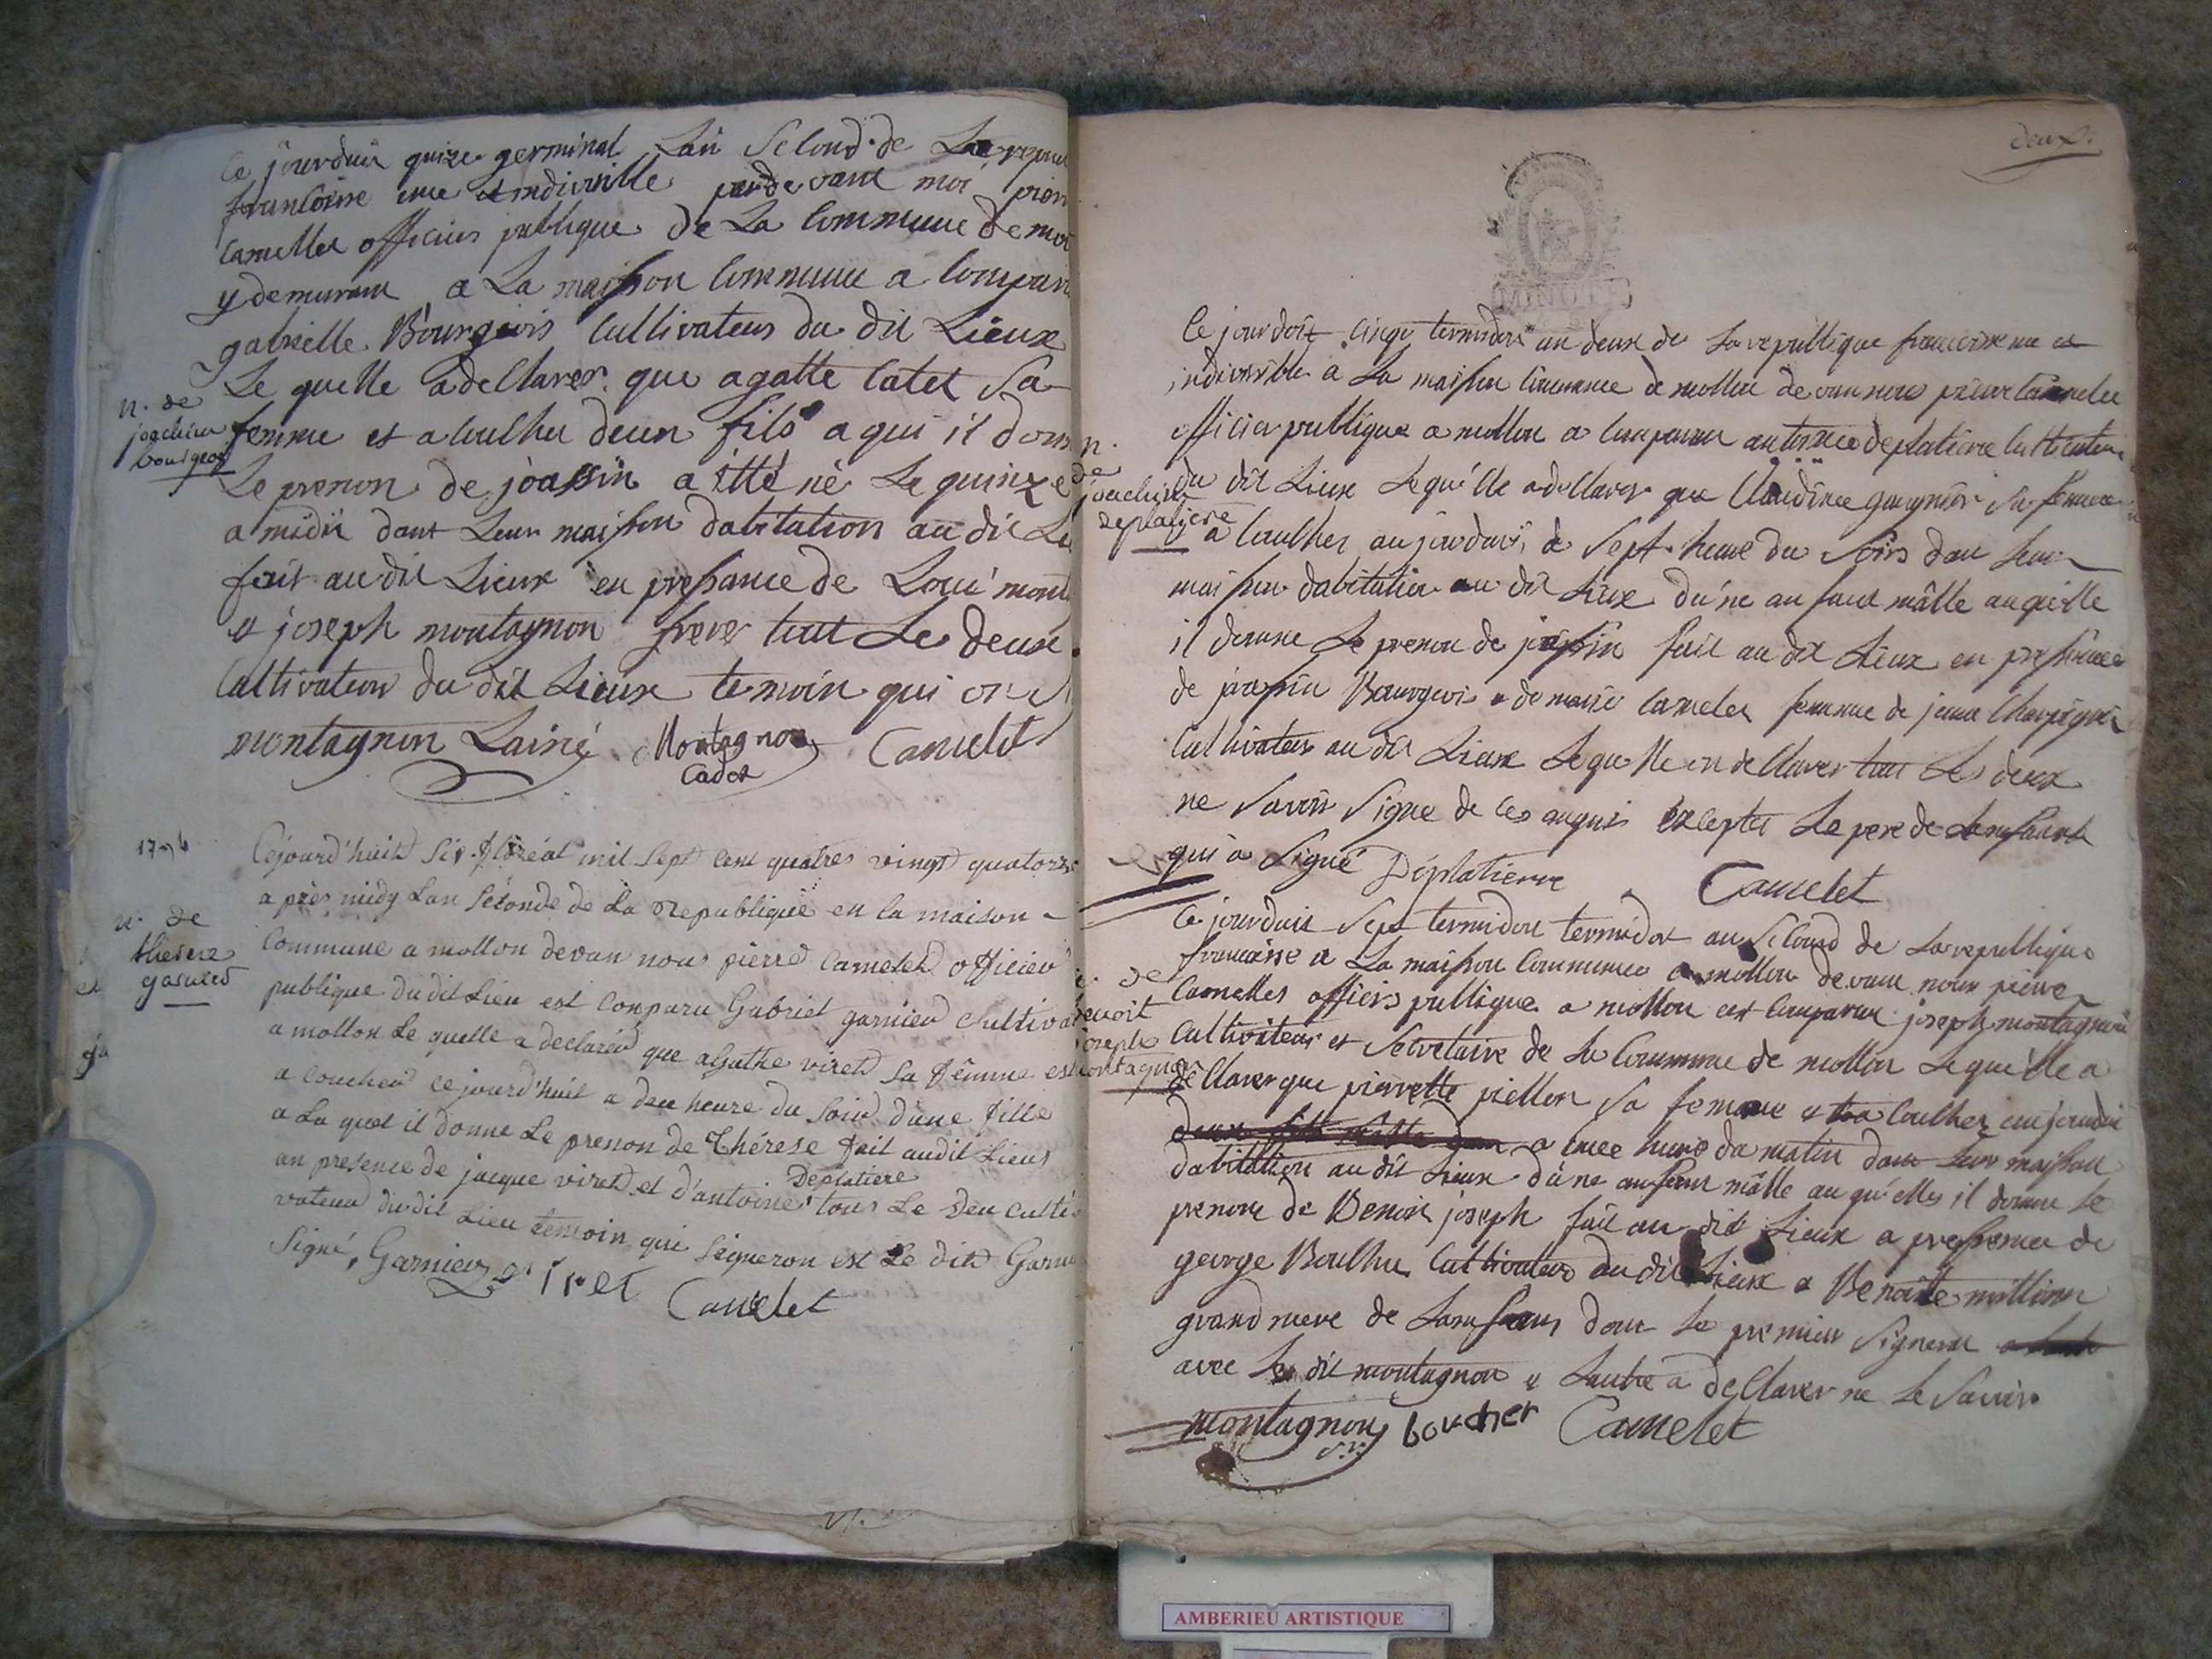 Ce jourduit quize germinal Lan Second de La repu
francoise une et indivisible pardevant moi pier
Camellet officier publique de La Commune de mo
y demurant a La maison Commune a Compar
gabrielle Bourgois Cultivateur du dit Lieux
Le quelle a dellarer que agatte Catet Sa
femme et a Coulher deun fils a qui il donn
Le prenon de joassin a etté né Le quinze
a midii dant Leur maison dabitation au dit Li
fait au dit Lieux en presance de Loui mont
et joseph montagnon frere tout Le deux
Cultivateur du dit Lieux temoin qui on
montagnon Lainé Montagnon Cadet Camelet
n. de
joachim
bourgeois
1794
Cejourd'huit Six floréal mil Sept Cent quatres vingt quatorze
a près midy Lan Séconde de La Republique en la maison
Commune a mollon devan nous pierre Camelet officier
publique du dit Lieu est Conparu Gabriel garnier Cultiva
a mollon Le quelle a declarér que agathe viret Sa femme est
a Coucher cejourd'huit a deu heure du Soir d'une fille
a La quel il donne Le prenon de Thérese fait audit Lieus
an presence de jacque viret et d'antoine Deplatiere tous Le deu Culti
vateur du dit Lieu temoin qui Signeron est Le dit Garni
Signé, Garnier viret
Camelet
n. de
therese
garnier
deux.
MINUTE
Ce jourdoit Cinqs termidor an deux de La republique francoise une et
indivisible a La maison Commune de mollon devan nous pierre Camelet
officier publique a mollon a Comparu antoinne deplatiere Cultivateur
du dit Lieux Lequelle a dellarer que Claudine gargnier Sa femme
a Coulher aujourduit a Sept heure du Soirs dan Leur
maison dabitation au dit Lieux du'ne anfant mâlle auquelle
il donne Le prenon de joassin fait au dit Lieux en presance
de joassin Bourgois et de marie Camelet femme de jean Charpignié
Cultivateur au dit Lieux Lequelle on dellarer tout Les deux
ne Savoir Signe de Ces anquis excepter Le pere de Lenfant
qui a Signé Déplatierre Camelet
n.
de
joachim
deplatiere
Ce jourduit Sept termidor termidor an Second de La republique
francoisse a La maison Commune a mollon devant nous pierre
Camelles officiers publique a mollon est Comparu joseph montagnon
Cultivateur et Secretaire de La Commune de mollon Lequelle a
dellarer que pierrette piellon Sa femme et Coulher aujourduit
a heure du matin dans Leur maison
dabitation au dit Lieux du'ne anfant mâlle au qu'elles il donne Le
prenom de Benoit joseph fait au dit Lieux a presence de
george Boulhe Cultivateur du dit Lieux et Benoitte million
grand mere de Lanfant dont Le premier Signera
avec Le dit montagnon et Lautre a dellarer ne Le Savoir
montagnon boucher Camelet
n. de
benoit
joseph
montagnon
AMBERIEU ARTISTIQUE